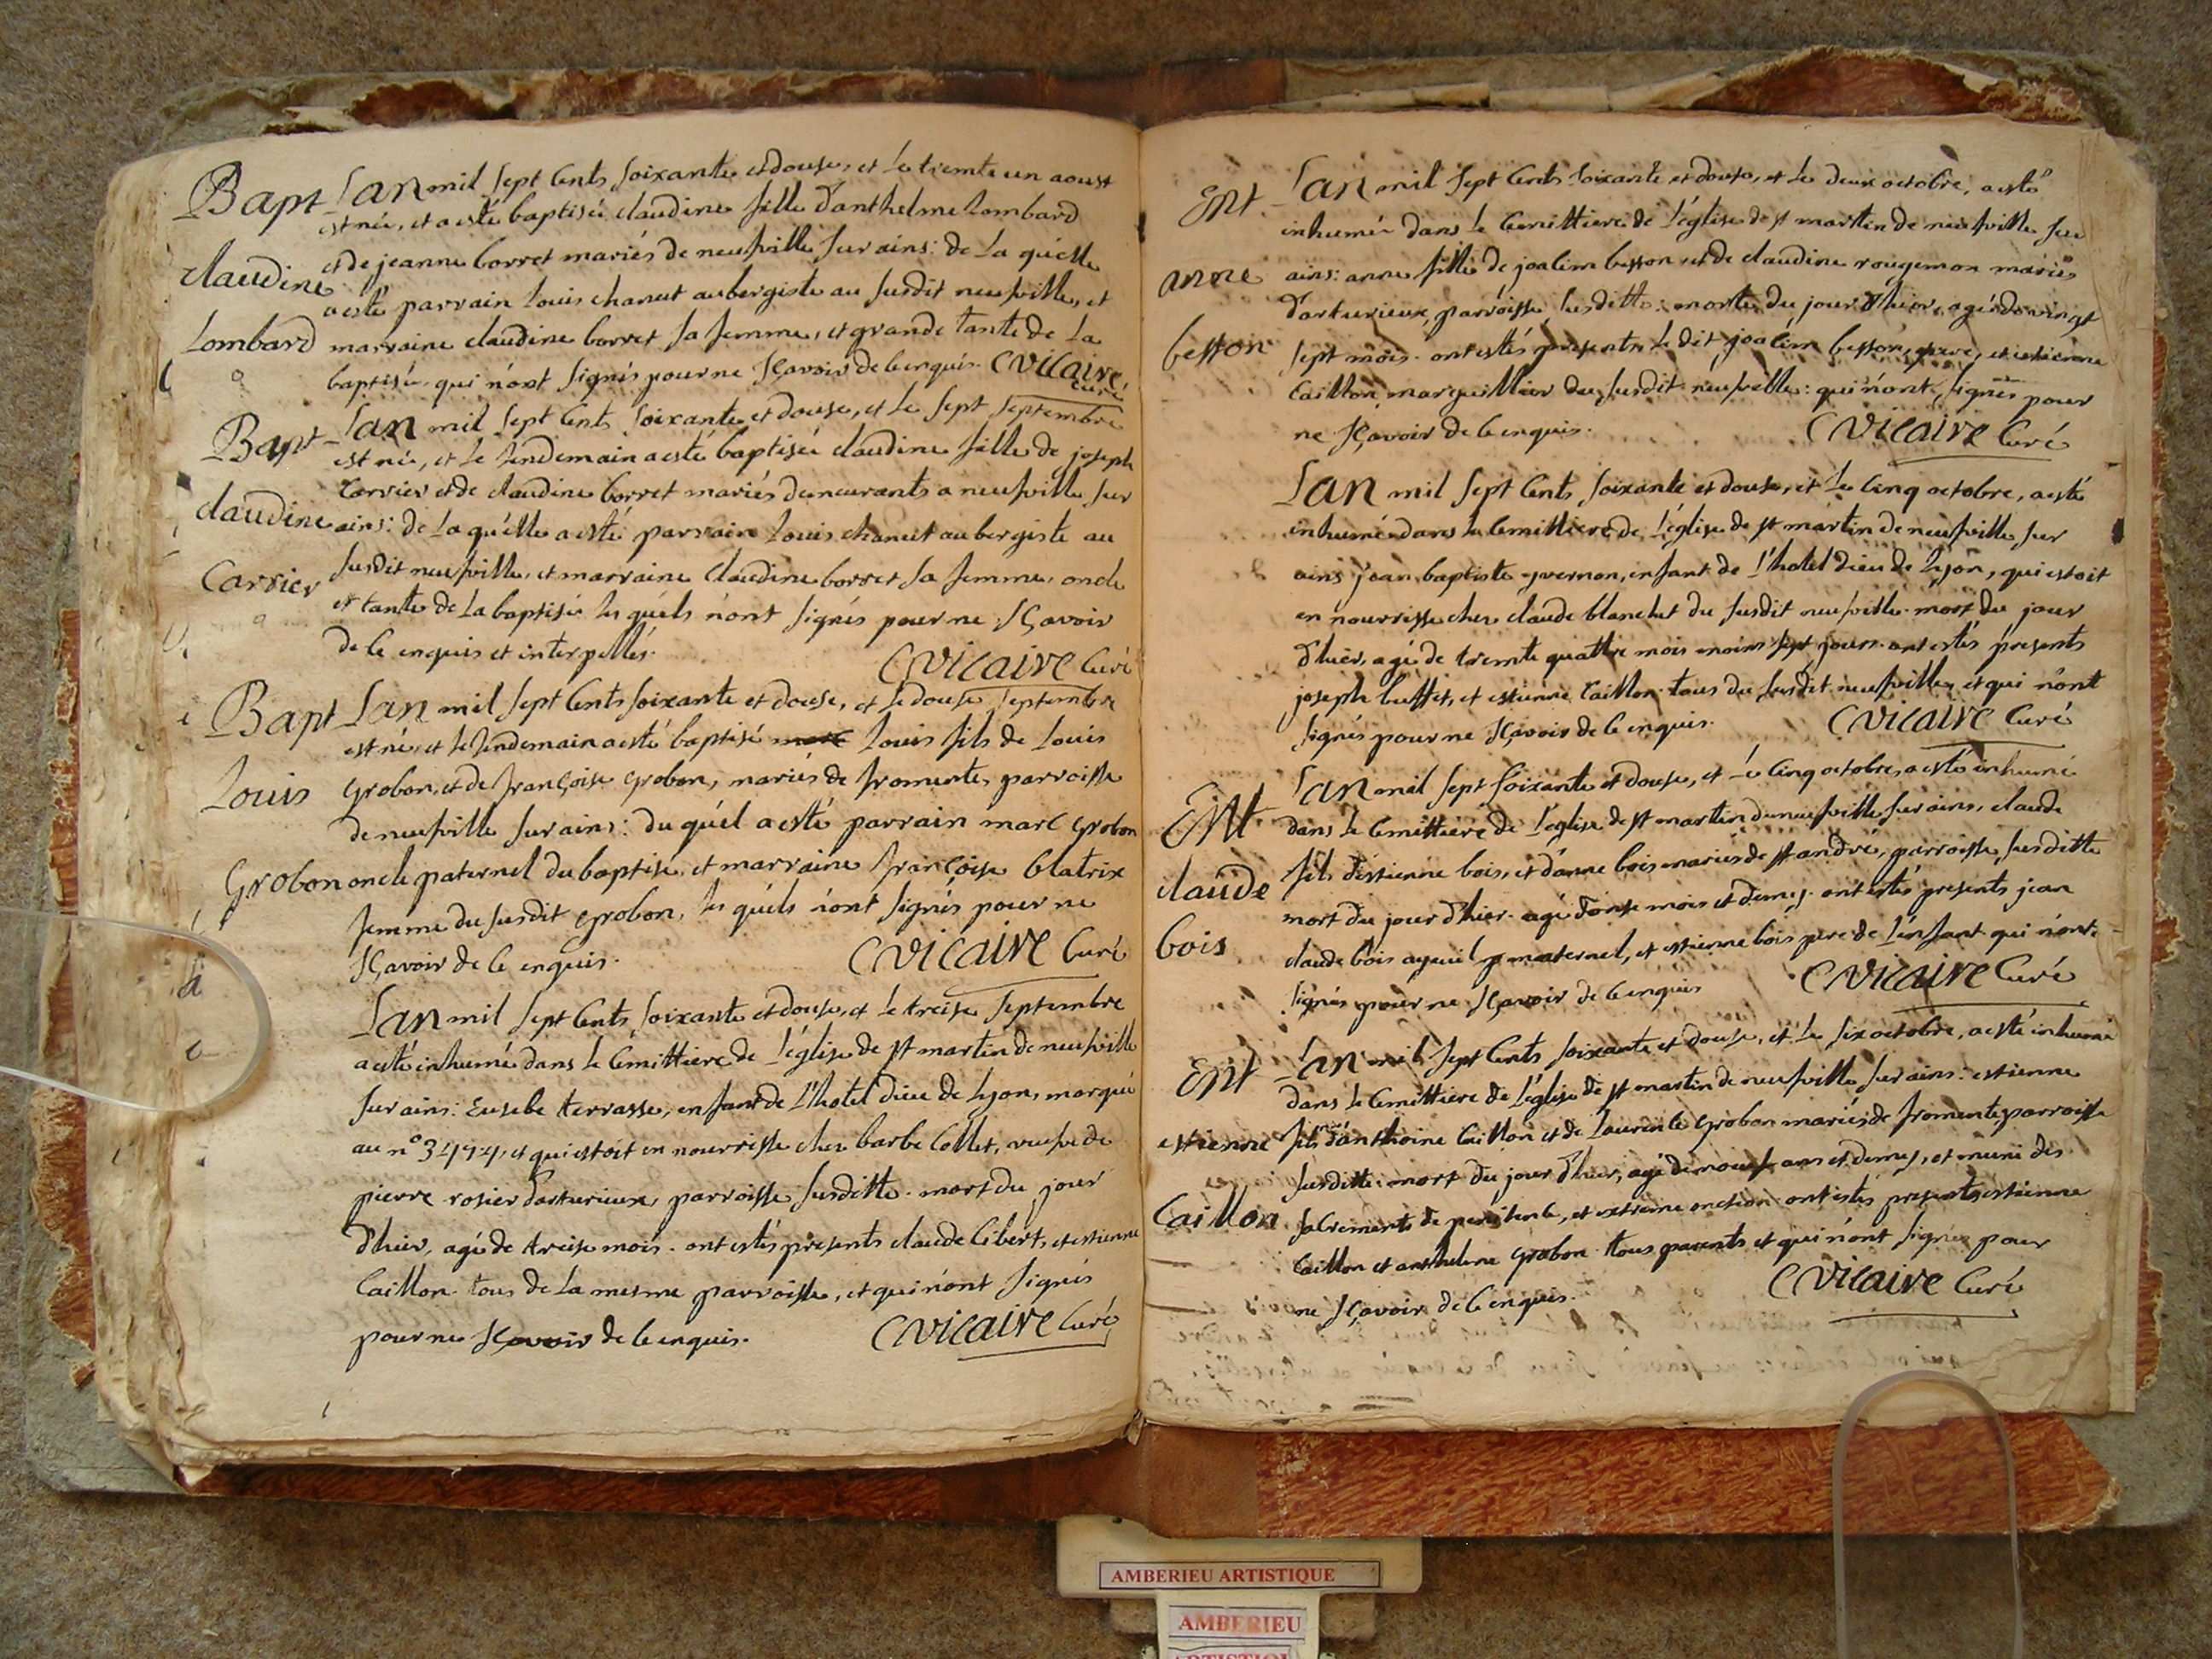 Bapt Lan mil sept cents soixante et douse, et le trente un aoust
est née, et a esté baptisée claudine fille d'anthelme Lombard
claudine et de jeanne borret mariés de neufville sur ains: de la quelle
a esté parrain Louis chanut aubergiste au susdit neufville, et
Lombard marraine claudine borret sa femme, et grande tante de la
baptisée. qui n'ont signés pour ne sçavoir de ce enquis. CVicaire
curé
Bapt Lan mil sept cents soixante et douse, et le sept septembre
est née, et le lendemain a esté baptisée claudine fille de joseph
Carrier et de claudine borret mariés demeurants a neufville sur
claudine ains: de la quelle a esté parrain Louis chanut aubergiste au
Carrier susdit neufville, et marraine Claudine borret sa femme, oncle
et tante de la baptisée les quels n'ont signés pour ne sçavoir
de ce enquis et interpellés. CVicaire Curé
Bapt Lan mil sept cents soixante et douse, et le douse septembre
est né, et le lendemain a esté baptisé marc Louis fils de Louis
Louis grobon, et de françoise grobon, mariés de fromente, parroisse
de neufville sur ains: du quel a esté parrain marc grobon
Grobon oncle paternel du baptisé, et marraine françoise blatrix
femme du susdit grobon, les quels n'ont signés pour ne
sçavoir de ce enquis. CVicaire Curé
Lan mil sept cents soixante et douse, et le treise septembre
a esté inhumé dans le cemittiere de l'église de st martin de neufville
sur ains: Eusebe terrasse, enfant de l'hotel dieu de Lyon, marqué
au n°, et qui estoit en nourrisse cher barbe Collet, veufve de
pierre rosier d'arturieux, parroisse susditte. mort du jour
d'hier, agé de treise mois. ont estés présents claude Cibert, et estienne
Caillon. tous de la mesme parroisse, et qui n'ont signés
pour ne sçavoir de ce enquis. CVicaire Curé
Ent. Lan mil sept cents soixante et douse, et le deux octobre, a esté
inhumée dans le cemittiere de l'église de st martin de neufville sur
anne ains: anne fille de joalim besson et de claudine rougemon mariés
d'arturieux, parroisse susditte: morte du jour d'hier, agée de vingt
besson sept mois. ont estés présents le dit joalim besson, pere, et estienne
Caillon, marguillier du susdit neufville: qui n'ont signés pour
ne sçavoir de ce enquis. CVicaire Curé
Lan mil sept cents soixante et douse, et le cinq octobre, a esté
inhumé dans le cemittiere de l'église de st martin de neufville sur
ains jean baptiste yvernon, enfant de l'hotel dieu de Lyon, qui estoit
en nourrisse cher claude blanchet du susdit neufville. mort du jour
d'hier, agé de trente quattre mois moins sept jours. ont estés présents
joseph buffet, et estienne Caillon. tous du susdit neufville, et qui n'ont
signés pour ne sçavoir de ce enquis. CVicaire Curé
Ent. Lan mil sept soixante et douse, et le cinq octobre, a esté inhumé
dans le cemittiere de l'église de st martin de neufville sur ains, claude
claude fils d'estienne bois, et d'anne bois mariés de st andré, parroisse susditte
mort du jour d'hier. agé d'onse mois et demy. ont estés présents jean
bois claude bois ayeuil maternel, et estienne bois pere de l'enfant qui n'ont
signés pour ne sçavoir de ce enquis CVicaire Curé
Ent Lan mil sept cents soixante et douse, et le six octobre, a esté inhumé
dans le cemittiere de l'église de st martin de neufville sur ains: estienne
estienne fils d'anthoine Caillon et de Laurence Grobon mariés de fromente, parroisse
susditte. mort du jour d'hier, agé de neuf ans et demy, et muni des
Caillon sacrements de penitence, et extreme onction. ont estés présents estienne
Caillon et anthelme Grobon. tous parents et qui n'ont signés pour
ne sçavoir de ce enquis. CVicaire Curé
AMBERIEU ARTISTIQUE
AMBERIEU
ARTISTIQUE